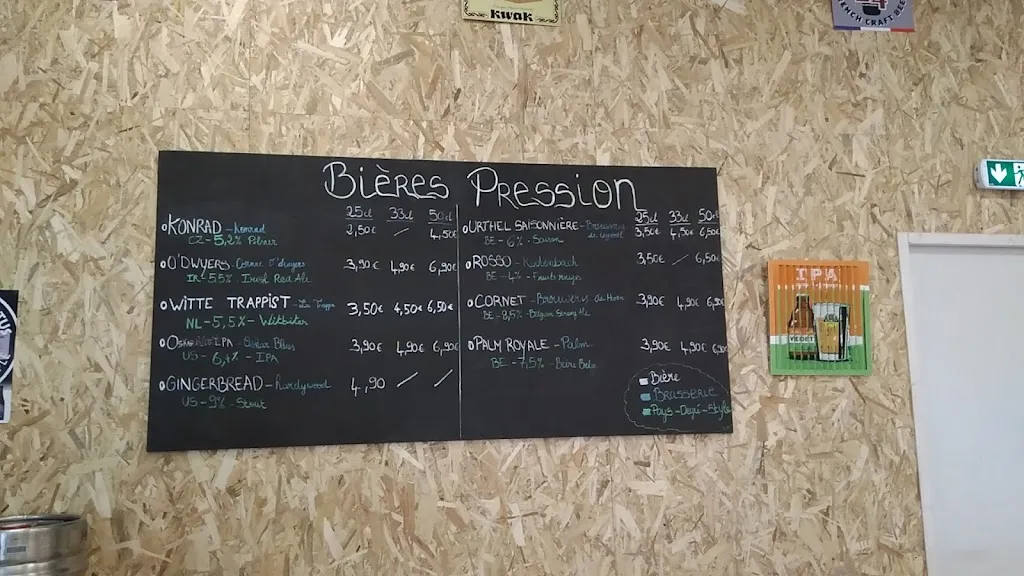 kwak
FRENCH CRAFT BEER
Bières Pression
25cl 33cl 50cl
KONRAD - Konrad 2,50€ / 4,50€
CZ - 5,2% Pilsner
O'DWYERS 3,90€ 4,90€ 6,90€
IR - 5,5% Irish Red Ale
WITTE TRAPPIST - La Trappe 3,50€ 4,50€ 6,50€
NL - 5,5% - Witbier
IPA - Oskar Blues 3,90€ 4,90€ 6,90€
US - 6,4% - IPA
GINGERBREAD - Hardywood 4,90 / /
US - 9% - Stout
25cl 33cl 50cl
URTHEL SAISONNIÈRE - Brouwerij 3,50€ 4,50€ 6,50€
BE - 6% - Saison
ROSSO 3,50€ / 6,50€
BE - 4% - Fruits rouges
CORNET - Brouwerij de Horn 3,90€ 4,90€ 6,90€
BE - 8,5% - Belgian Strong Ale
PALM ROYALE - Palm 3,90€ 4,90€ 6,90€
BE - 7,5% - Bière Belge
Bière
Brasserie
Pays - Degré - Style
IPA
VEDETT